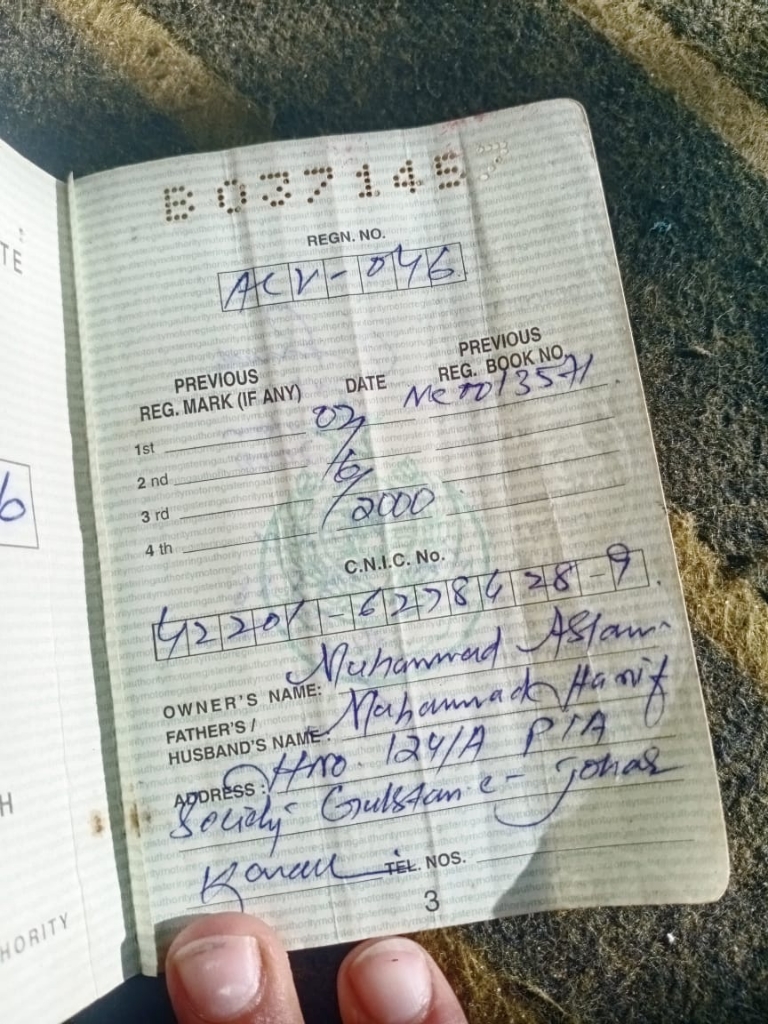 B037145
REGN. NO.
ACV-046
PREVIOUS REG. MARK (IF ANY) DATE PREVIOUS REG. BOOK NO.
1st 02/6/2000
2 nd
3 rd
4 th
C.N.I.C. No.
42201-6278428-9
OWNER'S NAME: Muhammad Aslam
FATHER'S / Muhammad Hanif
HUSBAND'S NAME:
ADDRESS: HNo. 124/A PIA
Society Gulstan-e-Johar
TEL. NOS.
3
TE
6
H
HORITY